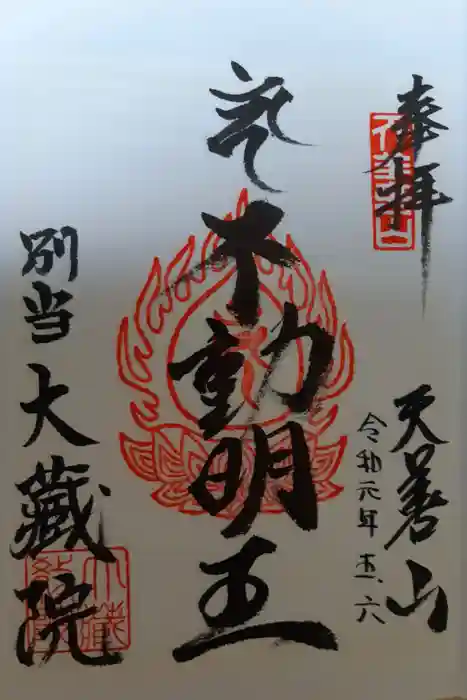 奉拝
天善山
令和元年 五、六
不動明王
別当 大蔵院